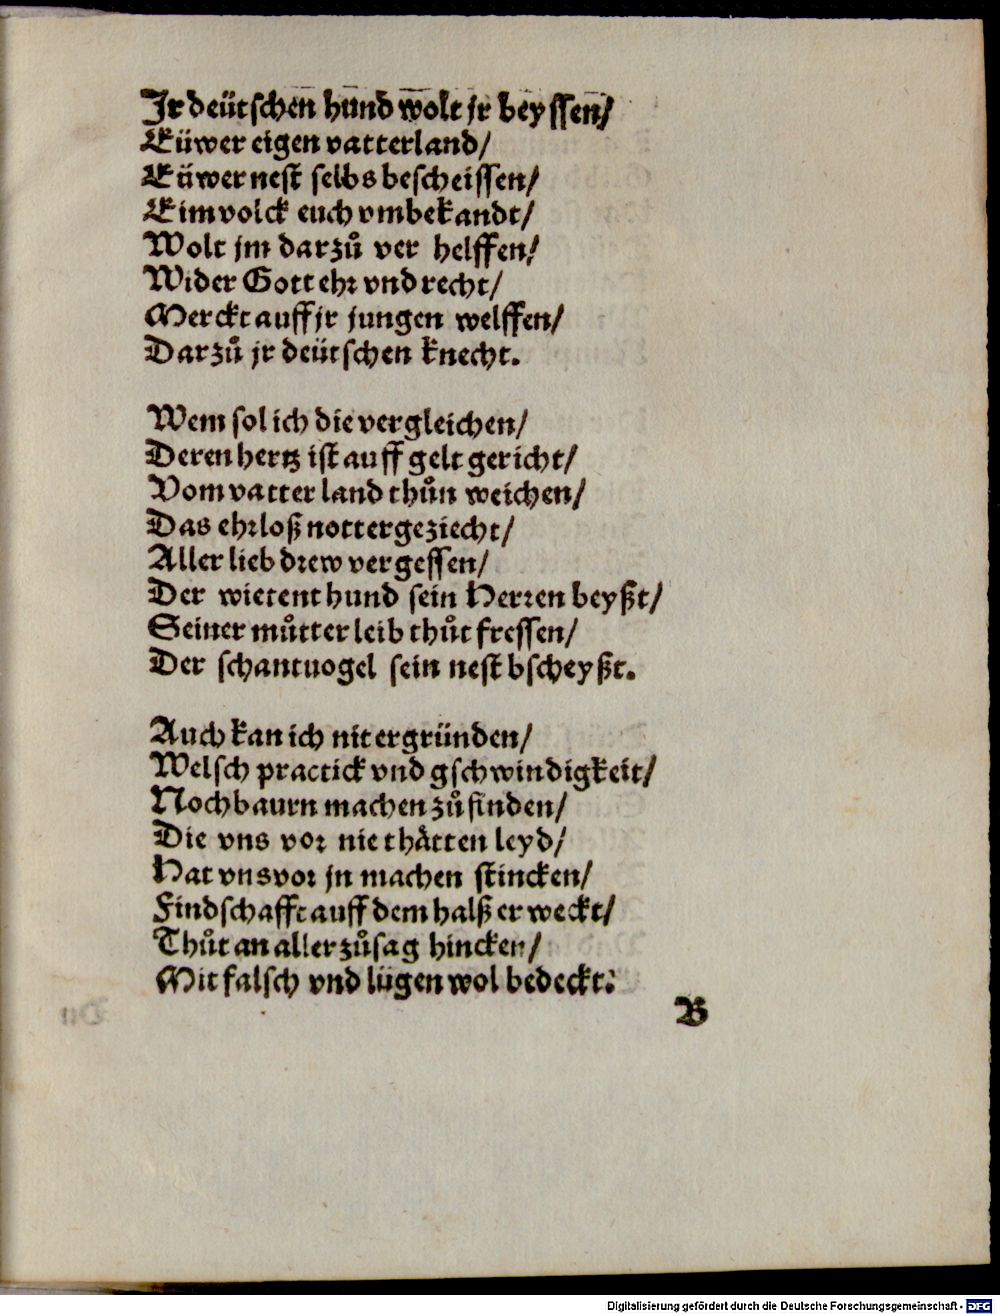 Jr deütschen hund wolt jr beyssen/
Eüwer eigen vatterland/
Eüwer nest selbs bescheissen/
Eim volck euch vmbekandt/
Wolt jm darzů ver helffen/
Wider Gott ehr vnd recht/
Merckt auff jr jungen welffen/
Darzů jr deütschen knecht.

Wem sol ich die vergleichen/
Deren hertz ist auff gelt gericht/
Vom vatter land thůn weichen/
Das ehrloß nottergeziecht/
Aller lieb drew vergessen/
Der wietent hund sein Herren beyßt/
Seiner můtter leib thůt fressen/
Der schantuogel sein nest bscheyßt.

Auch kan ich nit ergründen/
Welsch practick vnd gschwindigkeit/
Nochbaurn machen zů finden/
Die vns vor nie thåtten leyd/
Hat vns vor jn machen stincken/
Findschafft auff dem halß erweckt/
Thůt an aller zůsag hincken/
Mit falsch vnd lügen wol bedeckt.
B
Digitalisierung gefördert durch die Deutsche Forschungsgemeinschaft - DFG